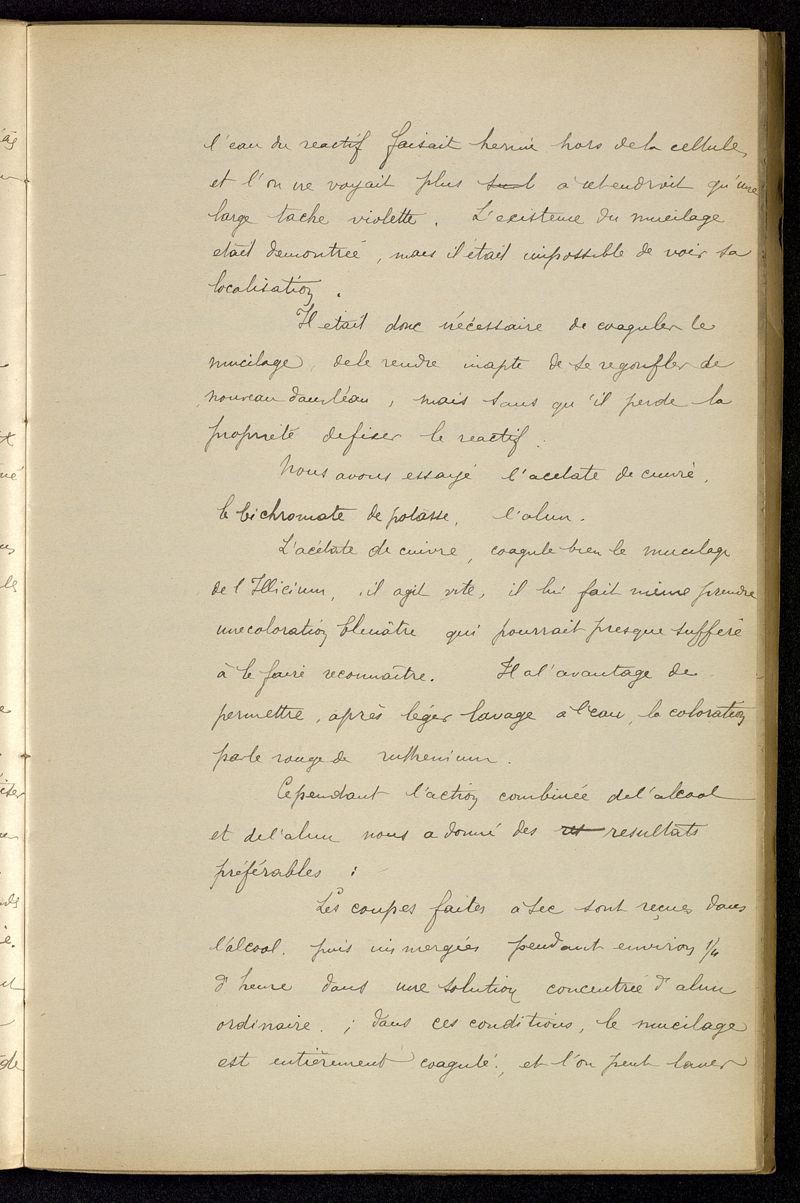 l'eau du reactif faisait hernie hors de la cellule,
et l'on ne voyait plus à cet endroit qu'une
large tache violette. L'existence du mucilage
etait demontrée, mais il était impossible de voir sa
localisation.
Il etait donc nécessaire de coaguler le
mucilage, de le rendre inapte de se regonfler de
nouveau dans l'eau, mais sans qu'il perde la
propriété de fixer le reactif.
Nous avons essayé l'acetate de cuivre,
le bichromate de potasse, l'alun.
L'acétate de cuivre, coagule bien le mucilage
de l'Illicium, il agit vite, il lui fait même prendre
une coloration bleuâtre qui pourrait presque suffire
à le faire reconnaître. Il a l'avantage de
permettre, après léger lavage à l'eau, la coloration
par le rouge de ruthenium.
Cependant l'action combinée de l'alcool
et de l'alun nous a donné des resultats
préférables :
Les coupes faites à sec sont reçues dans
l'alcool, puis immergées pendant environ 1/4
d'heure dans une solution concentrée d'alun
ordinaire. ; dans ces conditions, le mucilage
est entièrement coagulé, et l'on peut laver